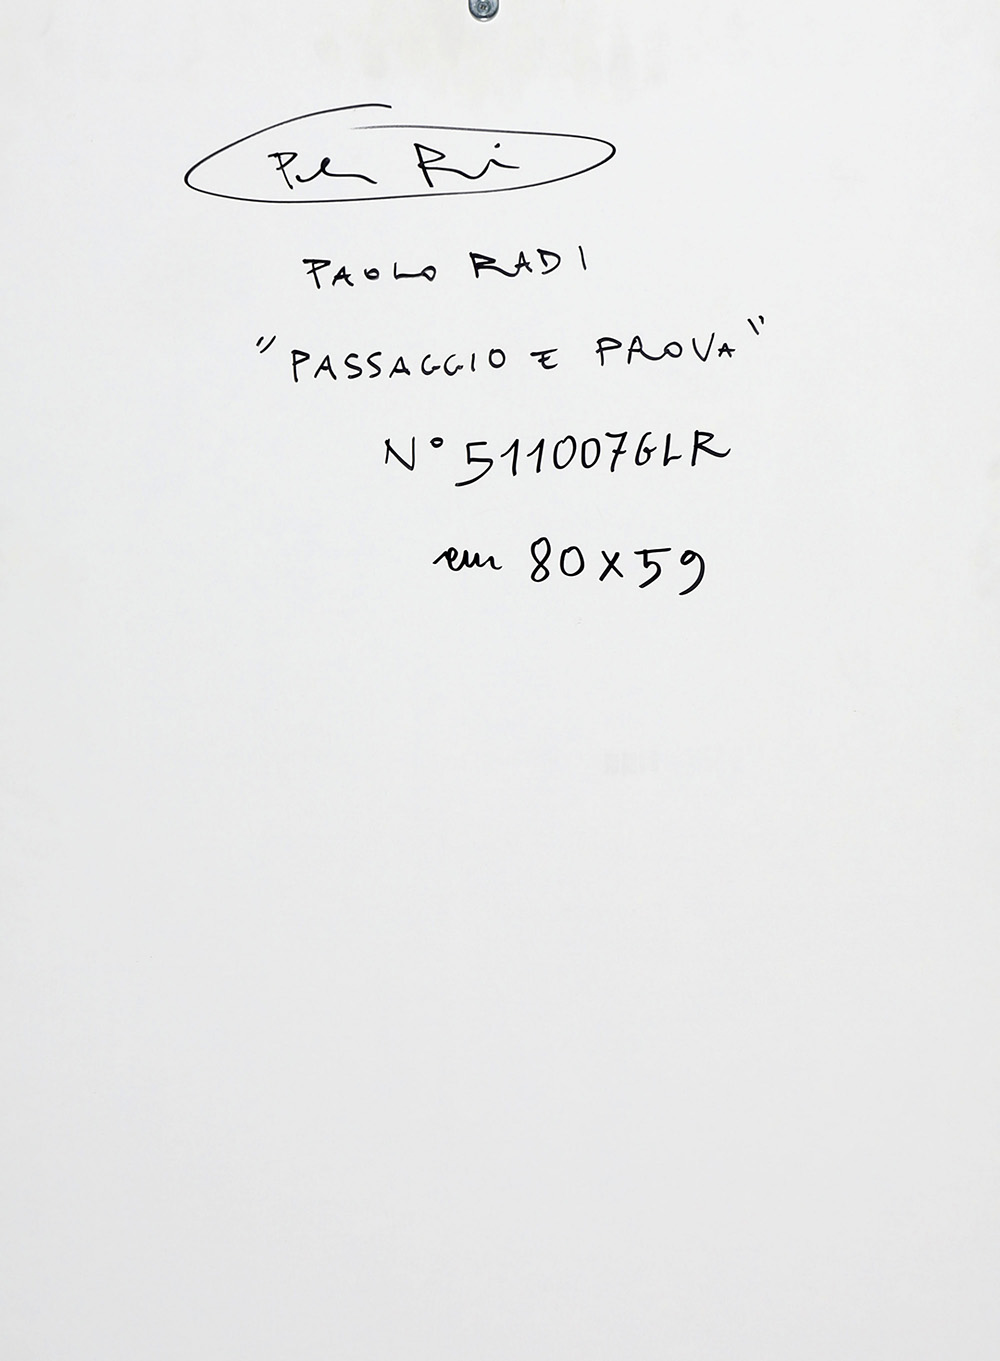 PAOLO RADI
"PASSAGGIO E PROVA"
N° 511007GLR
cm 80x59